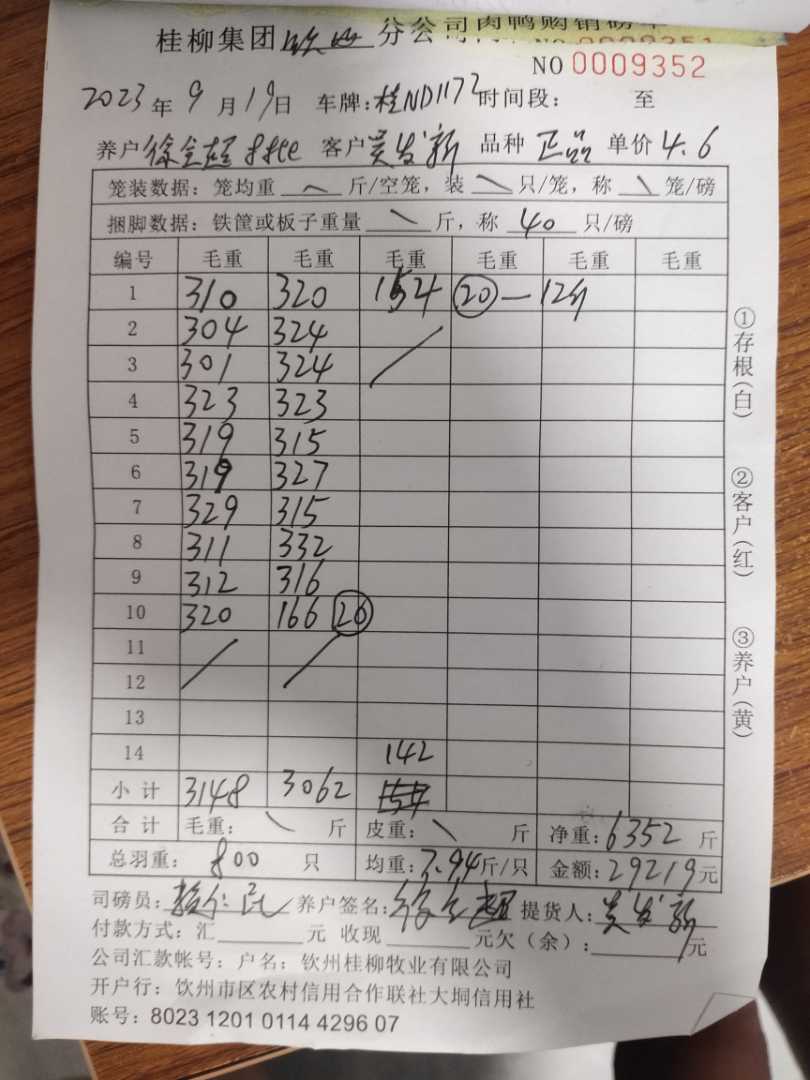 桂柳集团 钦州 分公司肉鸭购销磅单
NO 0009351
NO 0009352
2023年9月19日 车牌:桂ND1172 时间段: 至
养户 徐全超 客户 吴发新 品种 正品 单价 4.6
笼装数据:笼均重 \ 斤/空笼,装 \ 只/笼,称 \ 笼/磅
捆脚数据:铁筐或板子重量 \ 斤,称 40 只/磅
编号 毛重 毛重 毛重 毛重 毛重 毛重
1 310 320 154 20 — 12斤
2 304 324
3 301 324
4 323 323
5 319 315
6 319 327
7 329 315
8 311 332
9 312 316
10 320 166 20
11
12
13
14 142
小计 3148 3062 154
合计 毛重: \ 斤 皮重: \ 斤 净重:6352 斤
总羽重: 800 只 均重:7.94斤/只 金额:29219元
司磅员: 养户签名:徐全超 提货人:吴发新
付款方式:汇 元 收现 元欠(余): 元
公司汇款帐号:户名:钦州桂柳牧业有限公司
开户行:钦州市区农村信用合作联社大垌信用社
账号:8023 1201 0114 4296 07
①存根(白)
②客户(红)
③养户(黄)